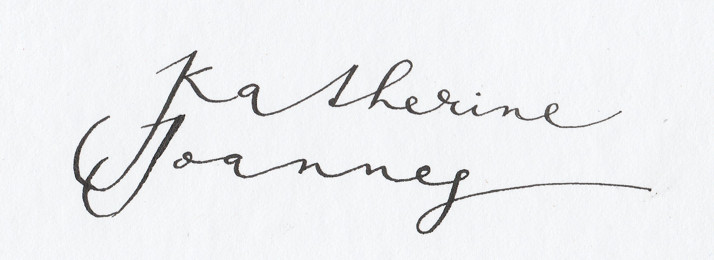 Katherine
Joannes